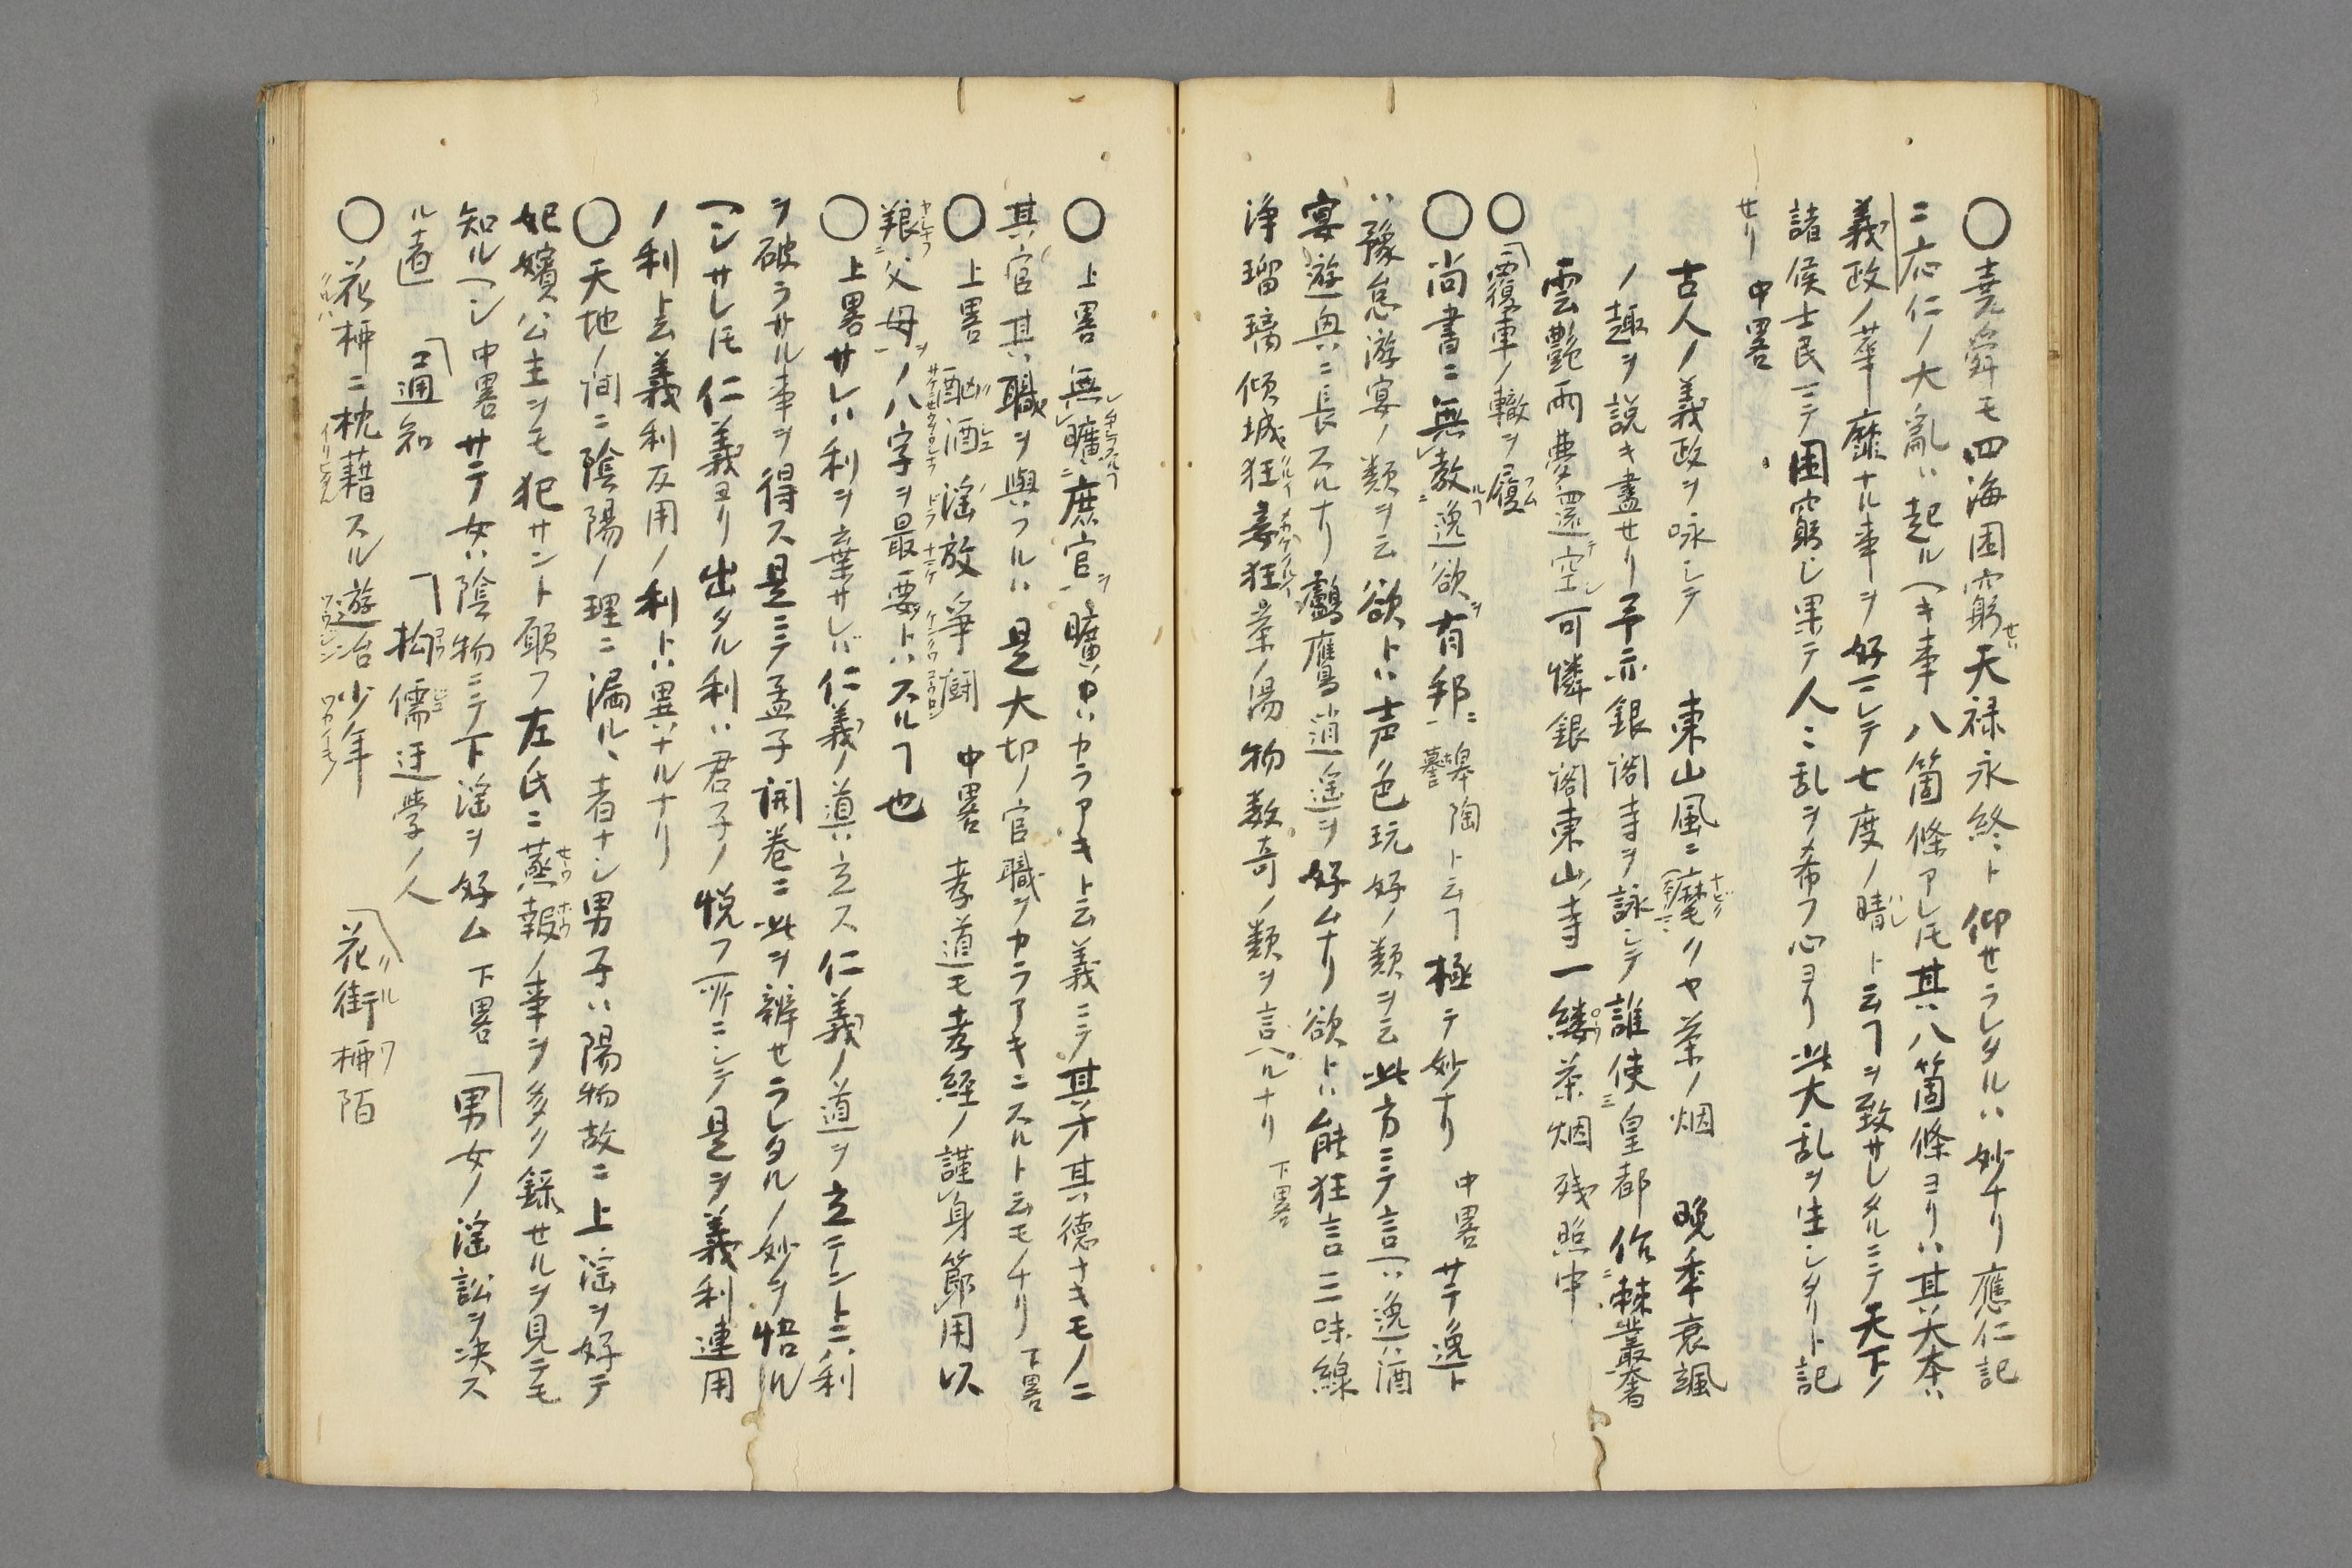 ○堯舜モ四海困窮セハ天禄永終ト仰セラレタルハ妙ナリ應仁記
ニ応仁ノ大亂ハ起ルヘキ事八箇條アレ𪜈其八箇條ヨリハ其大本ハ
義政ノ華靡ナル事ヲ好ニシテ七度ノ晴ハレト云ヿヲ致サレタルニテ天下ノ
諸侯士民ミテ困窮シ果テ人々乱ヲ希フ心ヨリ此大乱ヲ生シタリト記
せり 中畧
古人ノ義政ヲ咏シテ 東山風ニ靡ナビクリヤ茶ノ烟 晩季衰颯
ノ趣ヲ説キ盡せリ予亦銀閣寺ヲ詠シテ誰使皇都作棘叢奢
雲艶雨夢還テ空シ可憐銀閣東山寺一縷ロウ茶烟残照中
○「覆車ノ轍ヲ履フム
○尚書ニ無レ教ニ逸欲ヲ有邦ニ一皐陶謩ト云ヿ極テ妙ナリ 中畧 サテ逸ト
ハ豫怠游宴ノ類ヲ云欲トハ声色玩好ノ類ヲ云此方ニテ言ヘハ逸ハ酒
宴遊興ニ長スルナリ鸕鷹逍遥ヲ好ムナリ欲トハ能狂言三味線
浄瑠璃傾城狂クルイ妾狂メカケクルイ茶ノ湯物数奇ノ類ヲ言ヘルナリ 下畧
○上畧 無レ曠ニ庶官ヲ一曠ノ中ハカラアキト云義ニテ其才其徳ナキモノニ
其官其職ヲ與フルハ是大切ノ官職ヲカラアキニスルト云モノナリ 下畧
○上畧 酗酒淫放爭鬪 中畧 孝道モ孝経ノ謹身節用以
養ヤシナフ父母ヲ一ノ八字ヲ最要トハスルヿ也
○上畧サレハ利ヲ云棄サレバ仁義ノ道ハ立ス仁義ノ道ヲ立テント云ハ利
ヲ破ラサル事ヲ得ス是ニテ孟子開巻ニ此ヲ辨セラレタルノ妙ヲ悟ル
ヘシサレ𪜈仁義ヨリ出タル利ハ君子ノ悦フ所ニシテ是ヲ義利連用
ノ利ト云義利反用ノ利トハ異ナルナリ
○天地ノ間ニ陰陽ノ理ニ漏ルヽ者ナシ男子ハ陽物故ニ上淫ヲ好テ
妃嬪公主ヲモ犯サント願フ左氏ニ蒸セウ報ホウノ事ヲ多ク録セルヲ見テモ
知ルヘシ 中畧 サテ女ハ陰物ニテ下淫ヲ好ム 下畧 「男女ノ淫訟ヲ決ス
ル道 「通知 「拘儒迂學ノ人
○花柳ニ枕藉スル遊冶少年 「花街柳陌